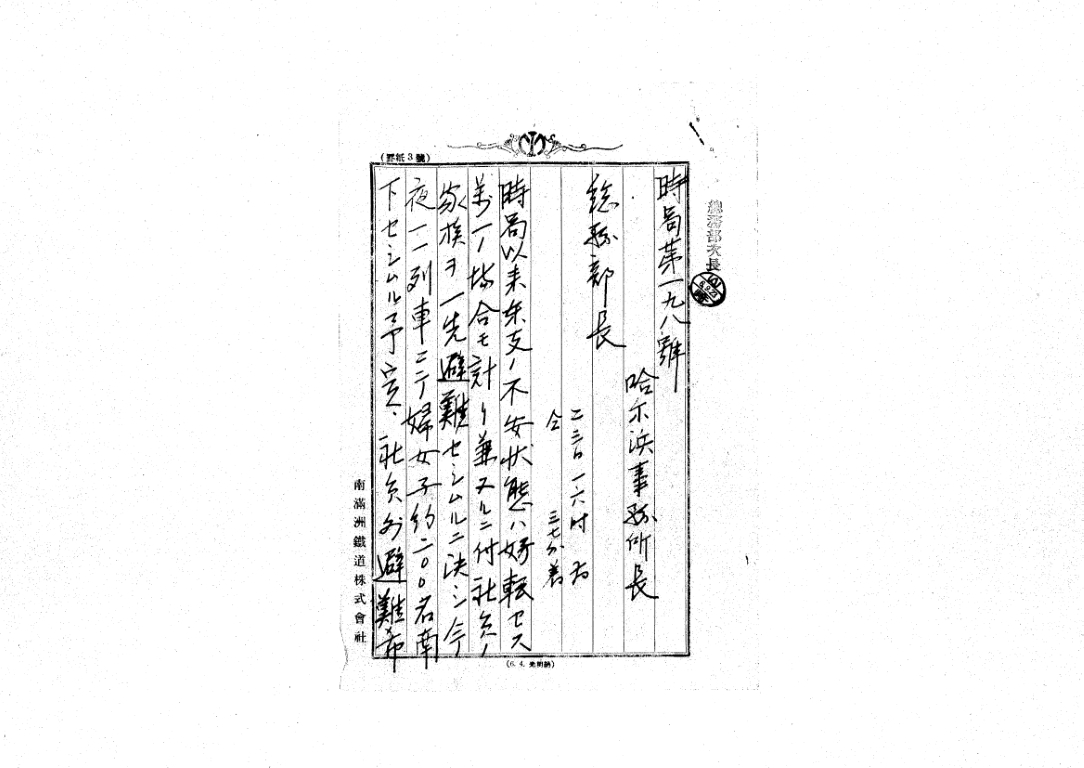 (罫紙3號)
総務部次長
時局第一九八号
哈尓浜事務所長
総務部長
二三日一六時 発
仝 三七分着
時局以来东支ノ不安状態ハ好転セス
万一ノ場合モ計リ兼ヌルニ付社員ノ
家族ヲ一先避難セシムルニ決シ今
夜一一列車ニテ婦女子約二〇〇名南
下セシムル予定、社員外避難希
南滿洲鐵道株式會社
(6. 4. 光明納)